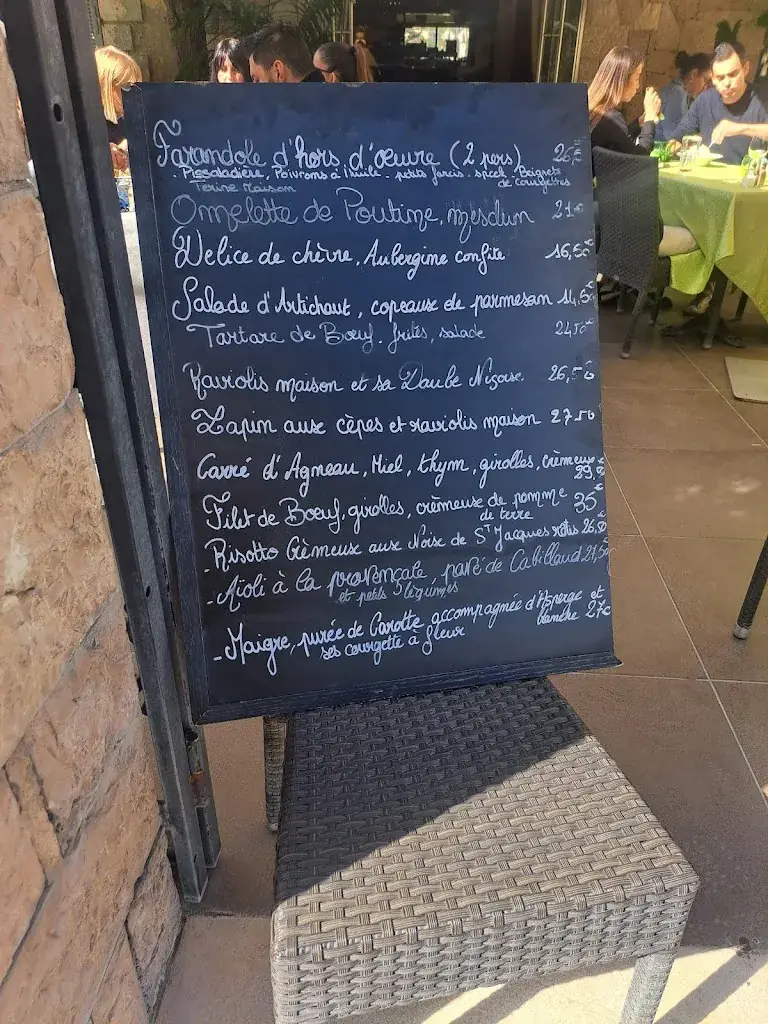 Farandole d'hors d'œuvre (2 pers) 26,€
- Pissaladière, Poivrons à l'huile - petits farcis - speck - Beignets
Terine Maison de Courgettes
Omelette de Poutine, mesclun 21€
Délice de chèvre, Aubergine confite 16,50€
Salade d'Artichaut, copeaux de parmesan 14,50€
Tartare de Bœuf, frites, salade 24,50€
Raviolis maison et sa Daube Niçoise 26,50
Lapin aux cèpes et raviolis maison 27.50
Carré d'Agneau, Miel, thym, girolles, crémeuse
29,
Filet de Bœuf, girolles, crèmeuse de pomme 35€
de terre
- Risotto Crèmeux aux Noix de St Jacques rôtis 26,
- Aïoli à la provençale, pavé de Cabillaud 21,50
et petits légumes
- Maigre, purée de Carotte accompagnée d'Asperge et
ses courgette à fleur blanche 27€